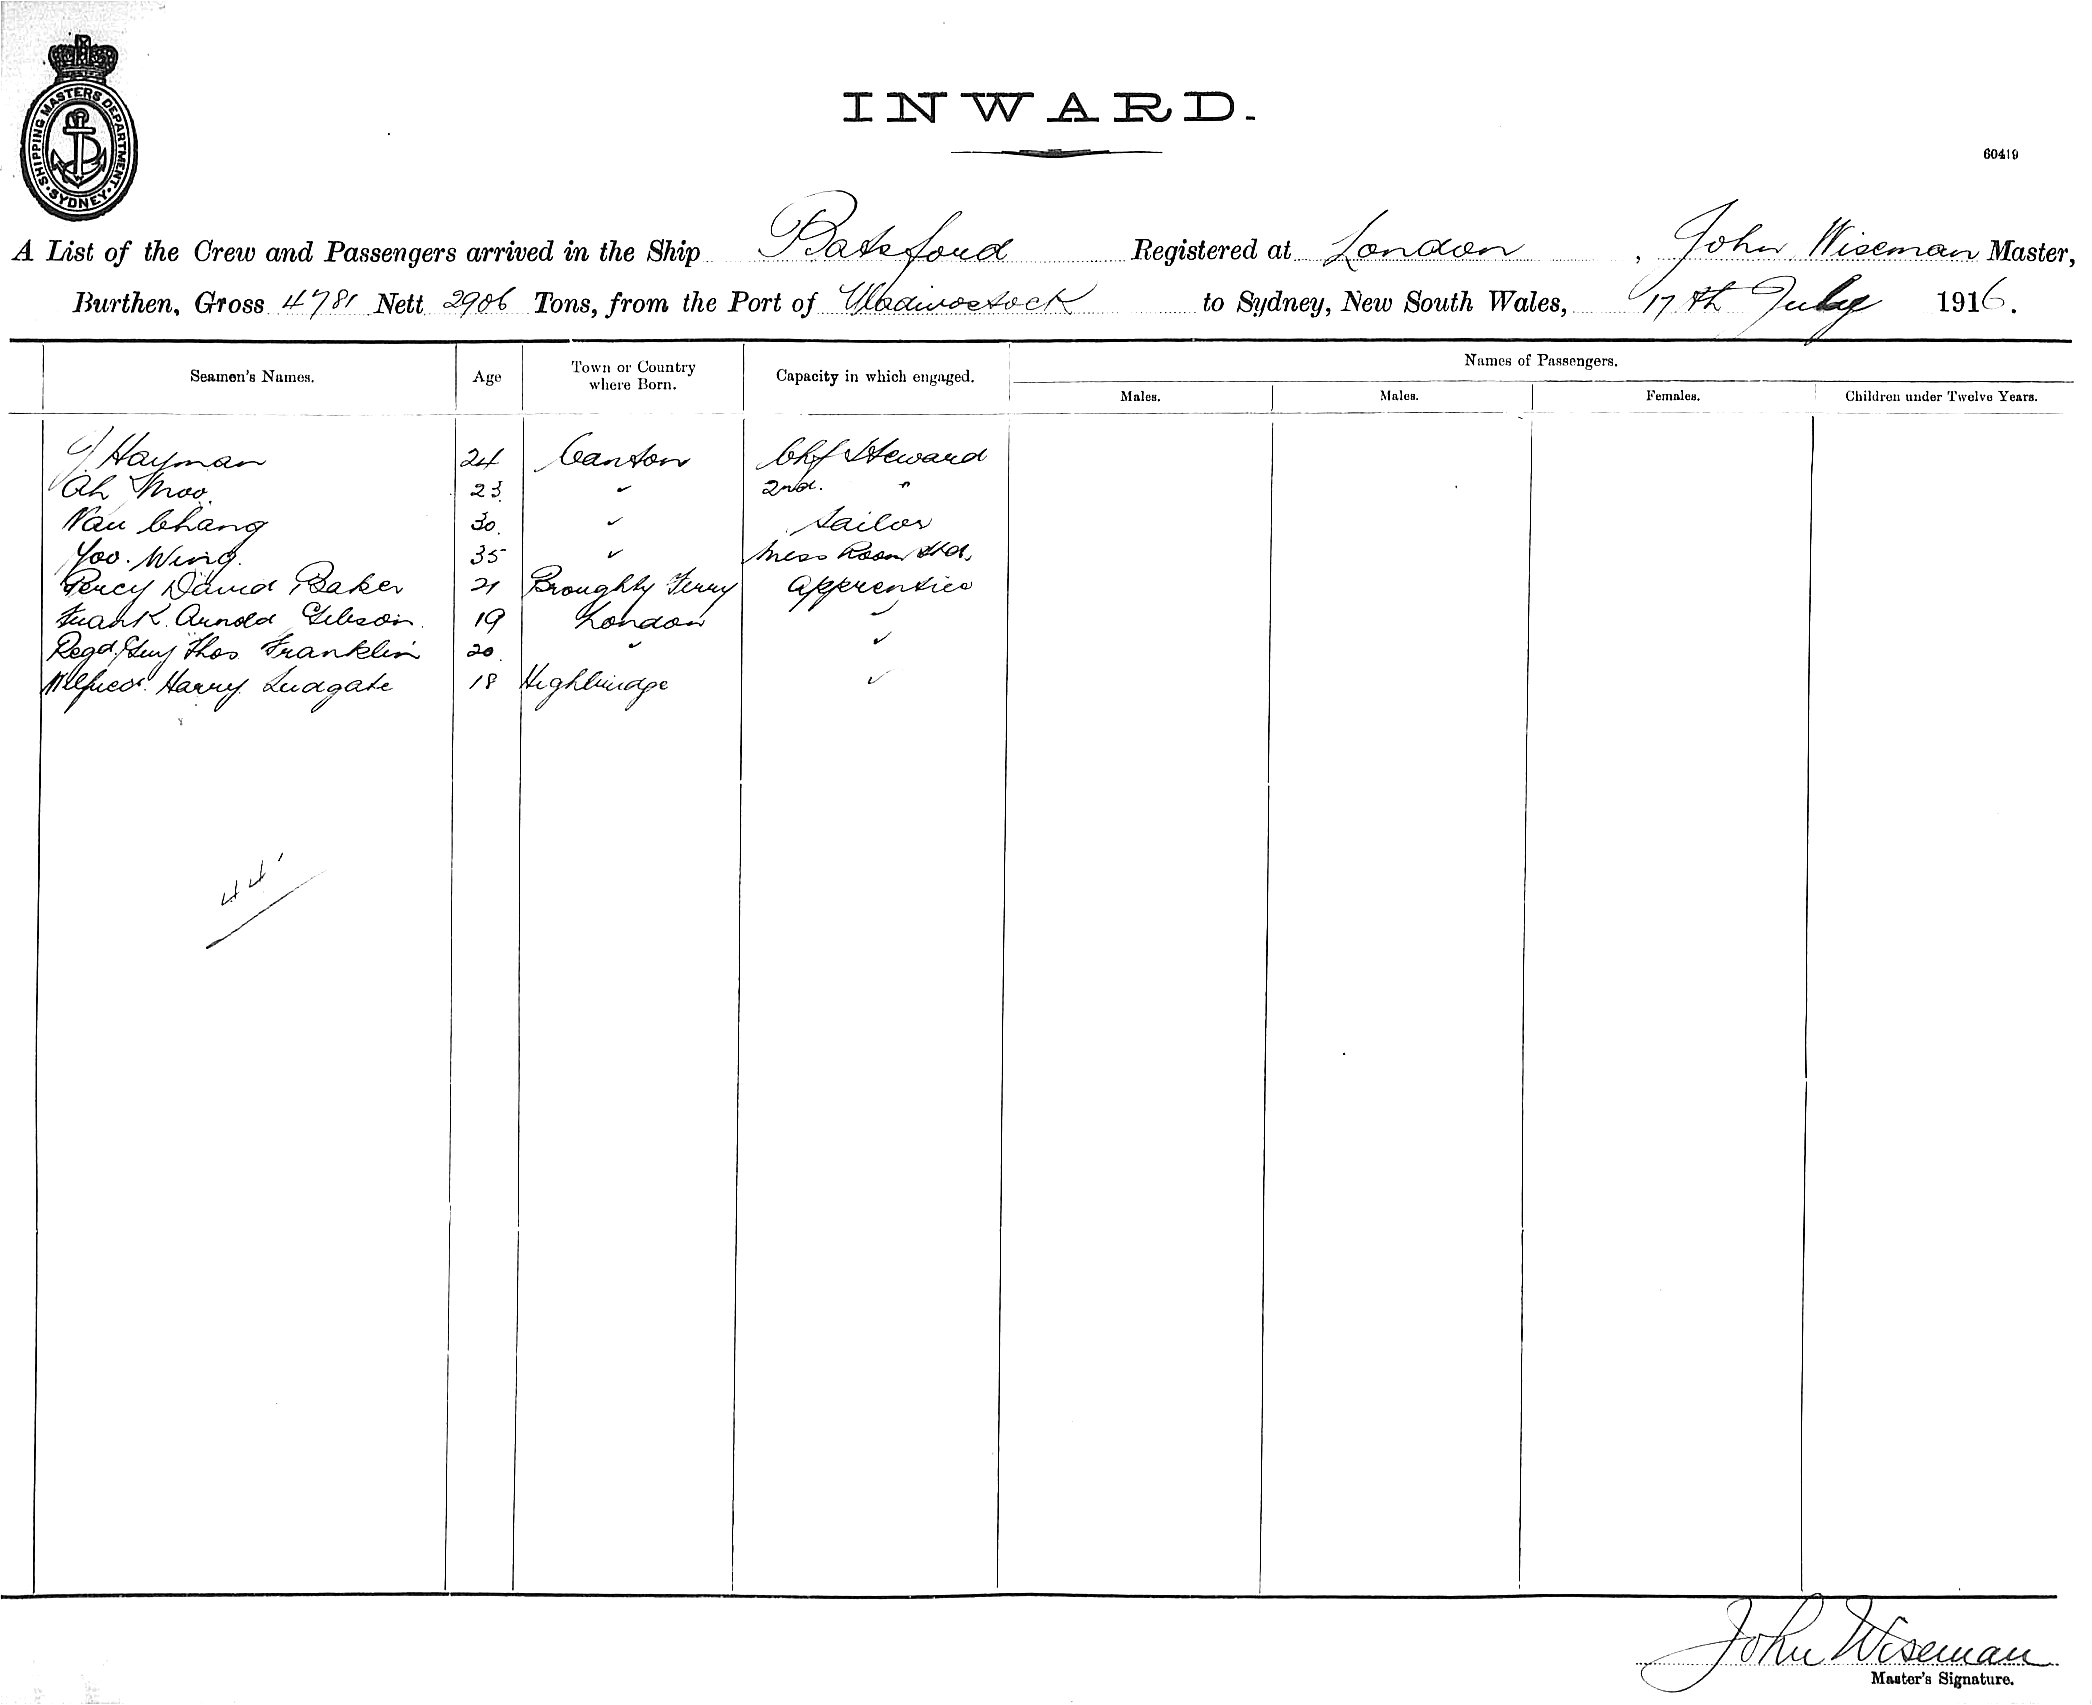 SHIPPING MASTERS DEPARTMENT. SYDNEY.
INWARD.
60419
A List of the Crew and Passengers arrived in the Ship Batsford Registered at London, John Wiseman Master,
Burthen, Gross 4781 Nett 2906 Tons, from the Port of Vladivostock to Sydney, New South Wales, 17th July 1916.
Seamen's Names. Age Town or Country where Born. Capacity in which engaged. Names of Passengers.
Males. Males. Females. Children under Twelve Years.
Hayman 24 Canton Chf Steward
Ah Moo. 23 " 2nd. "
Nau Chang 30. " Sailor
Yoo. Wing. 35 " Mess Room Std.
Percy David Baker 21 Broughty Ferry Apprentice
Frank Arnold Gibson. 19 London "
Regd. Guy Thos Franklin 20. " "
Wilfred. Harry Ludgate 18 Highbridge "
44
John Wiseman
Master's Signature.